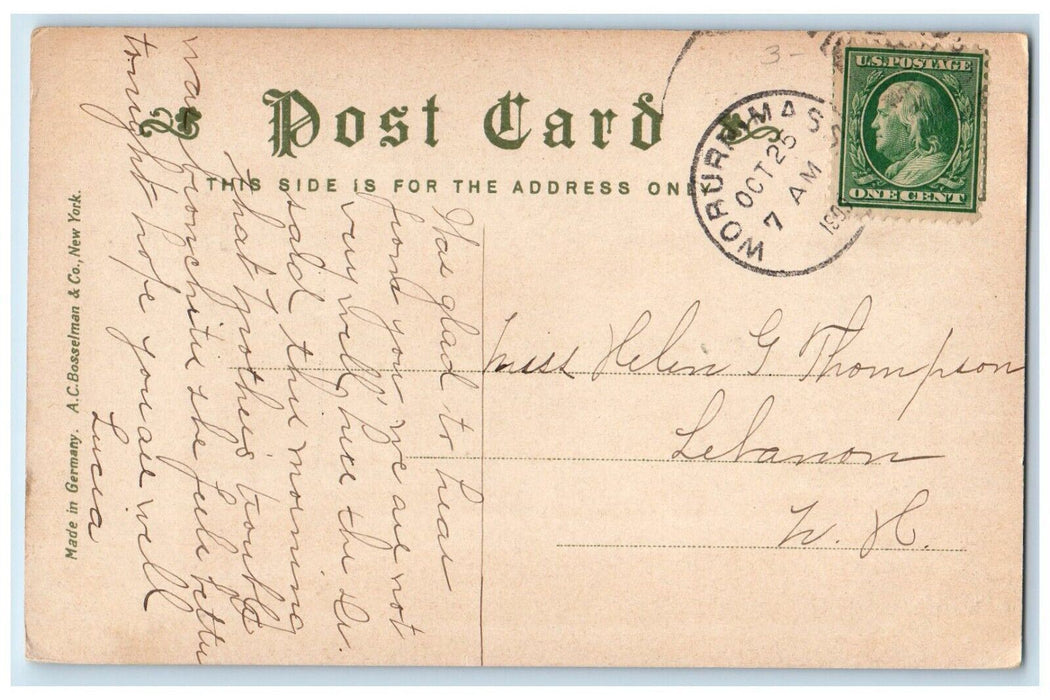 Post Card
THIS SIDE IS FOR THE ADDRESS ONLY
WOBURN MASS
OCT 25
7 AM
3-
U.S. POSTAGE
ONE CENT
Miss Helen G. Thompson
Lebanon
N. H.
Was glad to hear
from you we are not
very well here the Dr.
said this morning
that mothers trouble
was bronchitis she feels better
tonight hope you are well
Lucia
Made in Germany. A.C. Bosselman & Co., New York.